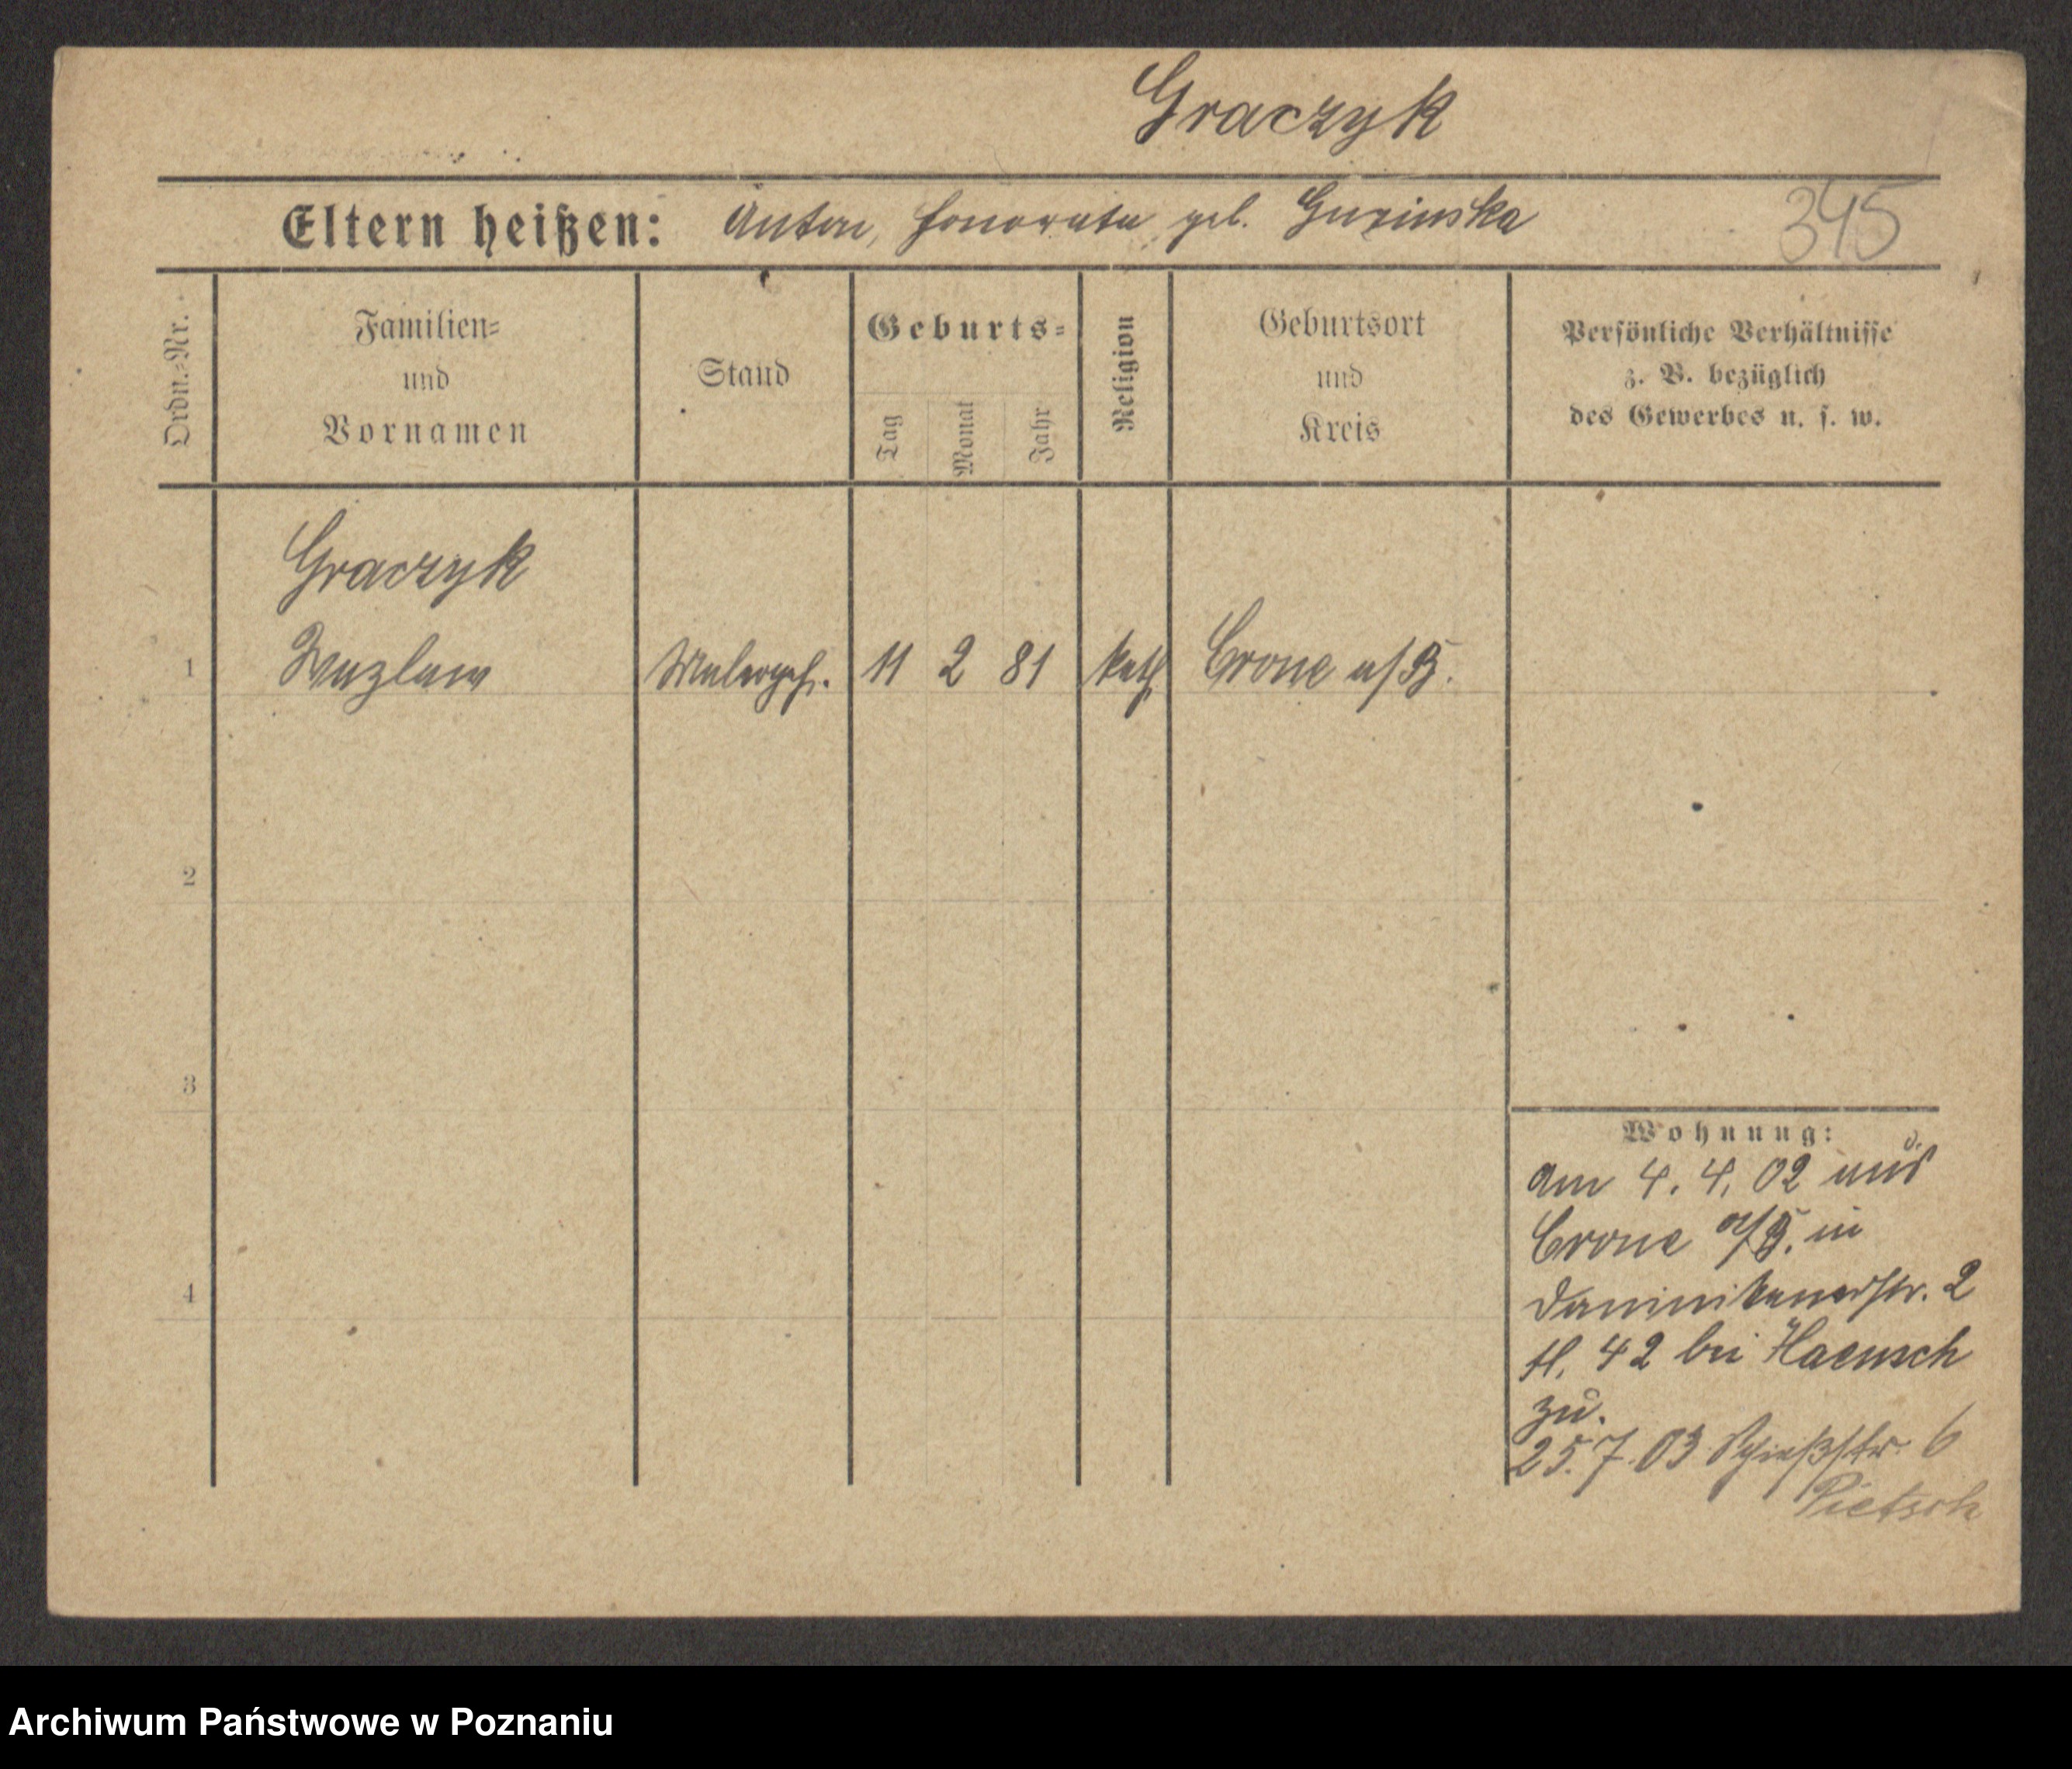 Graczyk
Eltern heißen: Anton, Honorata geb. Gurinska 345
Ordn.=Nr.
Familien=
und
Vornamen
Stand
Geburts=
Tag
Monat
Jahr
Religion
Geburtsort
und
Kreis
Persönliche Verhältnisse
z. B. bezüglich
des Gewerbes u. s. w.
Graczyk
1 Wazlaw Malergeh. 11 2 81 kath Crone a/B.
2
3
4
Wohnung:
am 4. 4. 02 aus
Crone a/B. in
Dominikanerstr. 2
H. 42 bei Haensch
zu.
25.7.03 Schießstr. 6
Pietsch
Archiwum Państwowe w Poznaniu